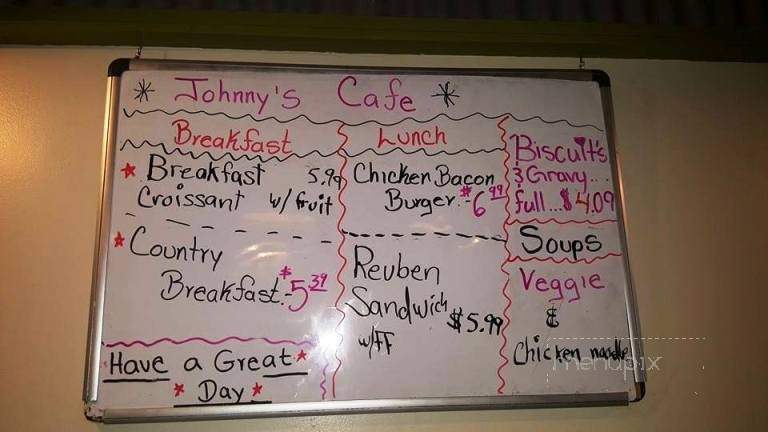 * Johnny's Cafe *
Breakfast
* Breakfast 5.99
Croissant w/ fruit
* Country
Breakfast.-$5.39
Have a Great *
* Day *
Lunch
Chicken Bacon
Burger.-$6.99
Reuben
Sandwich
$5.99
w/FF
Biscuit's
& Gravy...
full...$4.09
Soups
Veggie
&
Chicken noodle
menupix